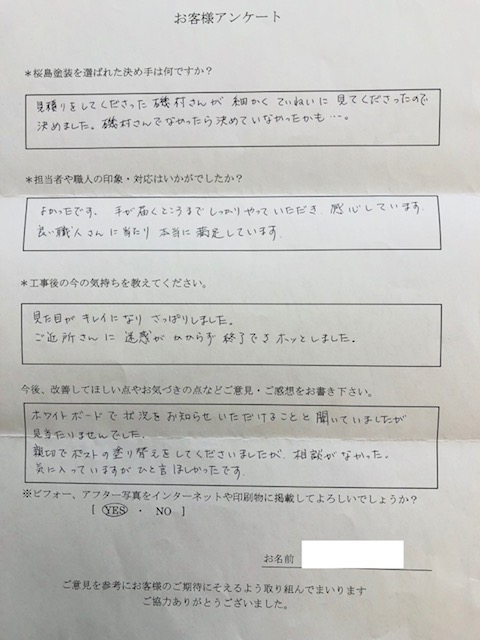 お客様アンケート
*桜島塗装を選ばれた決め手は何ですか?
見積りをしてくださった磯村さんが細かくていねいに見てくださったので
決めました。磯村さんでなかったら決めていなかったかも…。
*担当者や職人の印象・対応はいかがでしたか?
よかったです。手が届くところまでしっかりやっていただき、感心しています。
良い職人さんに当たり本当に満足しています。
*工事後の今の気持ちを教えてください。
見た目がキレイになりさっぱりしました。
ご近所さんに迷惑がかからず終了できホッとしました。
今後、改善してほしい点やお気づきの点などご意見・ご感想をお書き下さい。
ホワイトボードで状況をお知らせいただけることと聞いていましたが
見当たりませんでした。
親切でポストの塗り替えをしてくださいましたが、相談がなかった。
気に入っていますがひと言ほしかったです。
※ビフォー、アフター写真をインターネットや印刷物に掲載してよろしいでしょうか?
[ YES ・ NO ]
お名前
ご意見を参考にお客様のご期待にそえるよう取り組んでまいります
ご協力ありがとうございました。